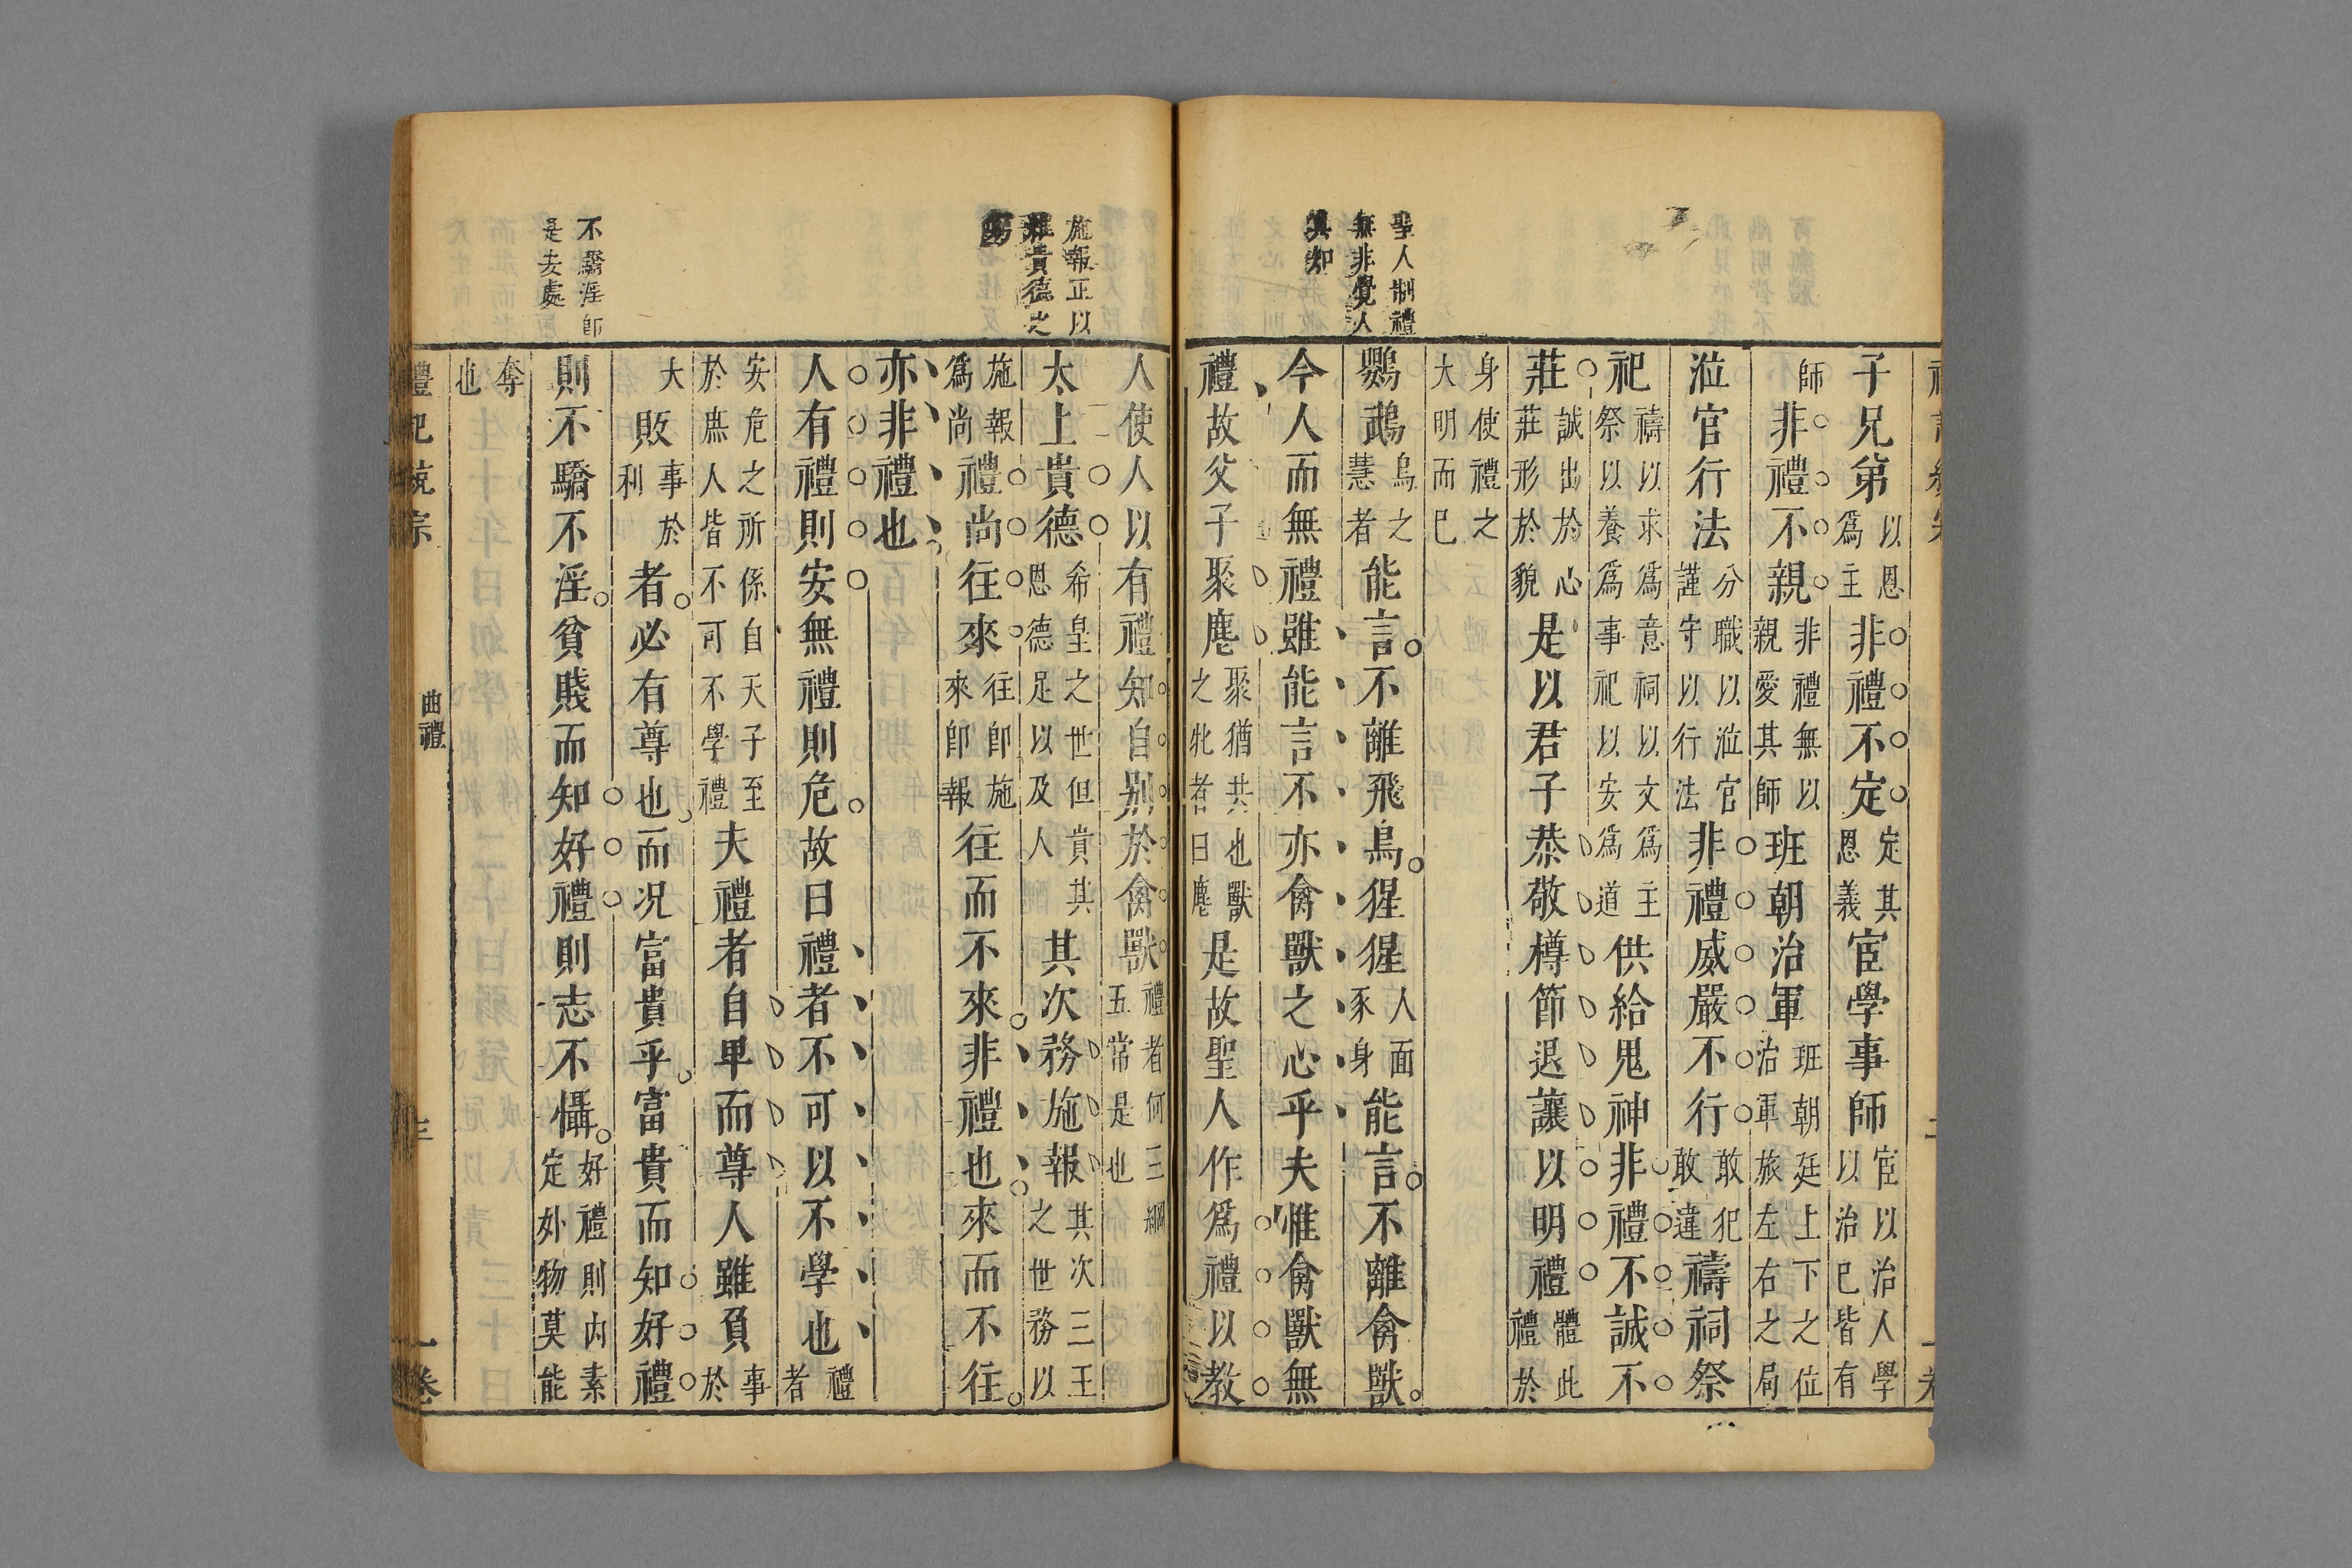 聖人制禮
無非覺人
子兄弟以恩爲主非禮不定定其恩義宦學事師宦以治人學以治已皆有
師非禮不親非禮無以親愛其師班朝治軍班朝廷上下之位治軍旅左右之局
涖官行法分職以涖官謹守以行法非禮威嚴不行敢犯敢違禱祠祭
祀禱以求爲意祠以文爲主祭以養爲事祀以安爲道供給鬼神非禮不誠不
莊誠出於心莊形於貌是以君子恭敬樽節退讓以明禮體此禮於
身使禮之大明而已
鸚鵡鳥之慧者能言不離飛鳥猩猩人面豕身能言不離禽獸
今人而無禮雖能言不亦禽獸之心乎夫惟禽獸無
禮故父子聚麀聚猶共也獸之牝者曰麀是故聖人作爲禮以教
施報正以
貴德之
不驕淫卽
是去處
人使人以有禮知自别於禽獸禮者何三綱五常是也
太上貴德希皇之世但貴其恩德足以及人其次務施報其次三王之世務以
施報爲尚禮尚往來往卽施來卽報往而不來非禮也來而不往
亦非禮也
人有禮則安無禮則危故曰禮者不可以不學也禮者
安危之所係自天子至於庶人皆不可不學禮夫禮者自卑而尊人雖負事於
大販事於利者必有尊也而况富貴乎富貴而知好禮
則不驕不淫貧賤而知好禮則志不懾好禮則内素定外物莫能
奪也
曲禮